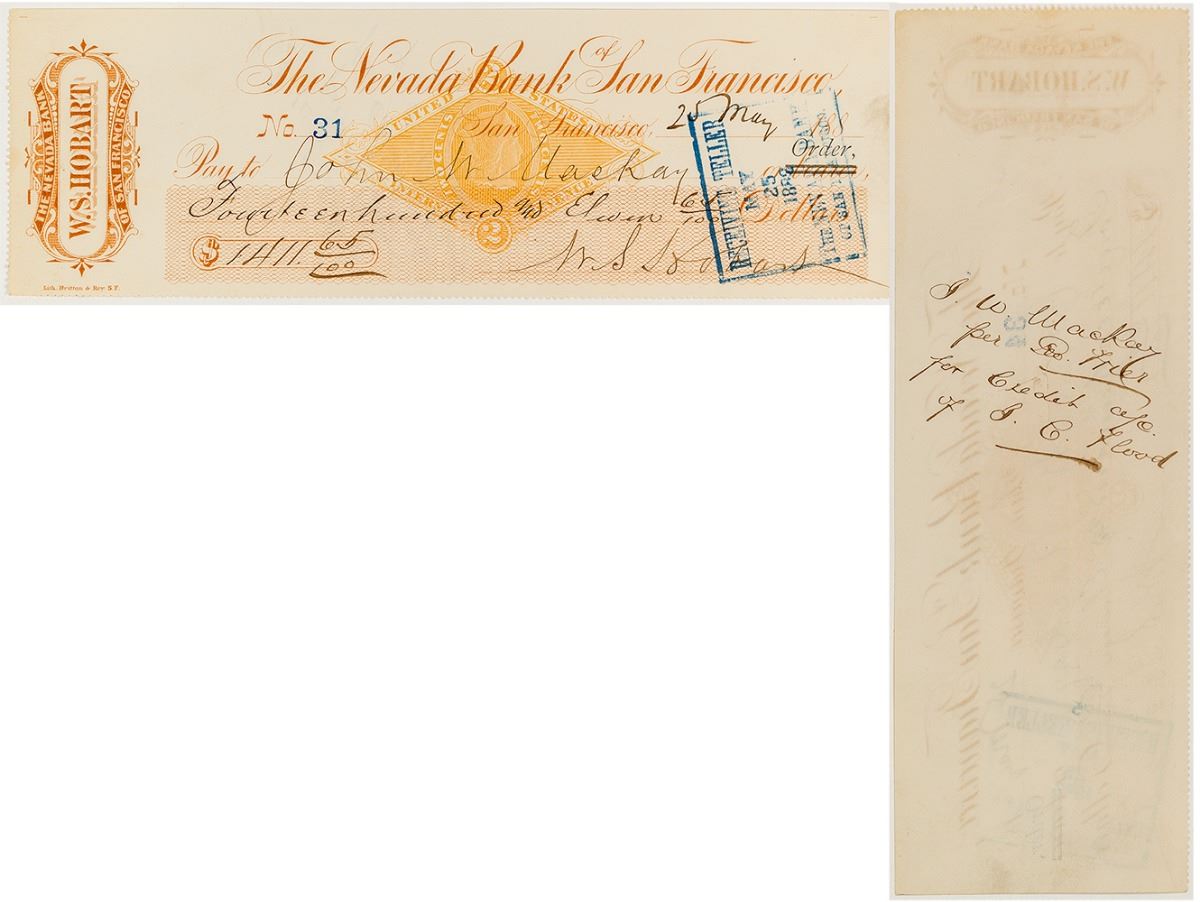 The Nevada Bank of San Francisco,
THE NEVADA BANK
W.S. HOBART
OF SAN FRANCISCO.
No. 31 San Francisco, 25 May 188
Pay to John W Mackay or Order,
Fourteen hundred and Eleven 65/100 Dollars
$ 1411 65/100 W S Hobart
UNITED STATES
INTERNAL REVENUE
2
RECEIVING TELLER
MAY
25
THE NEVADA BANK
OF SAN FRANCISCO
Lith. Britton & Rey S.F.
J. W. Mackay
per Geo. Frier
for Credit a/c.
of J. C. Flood